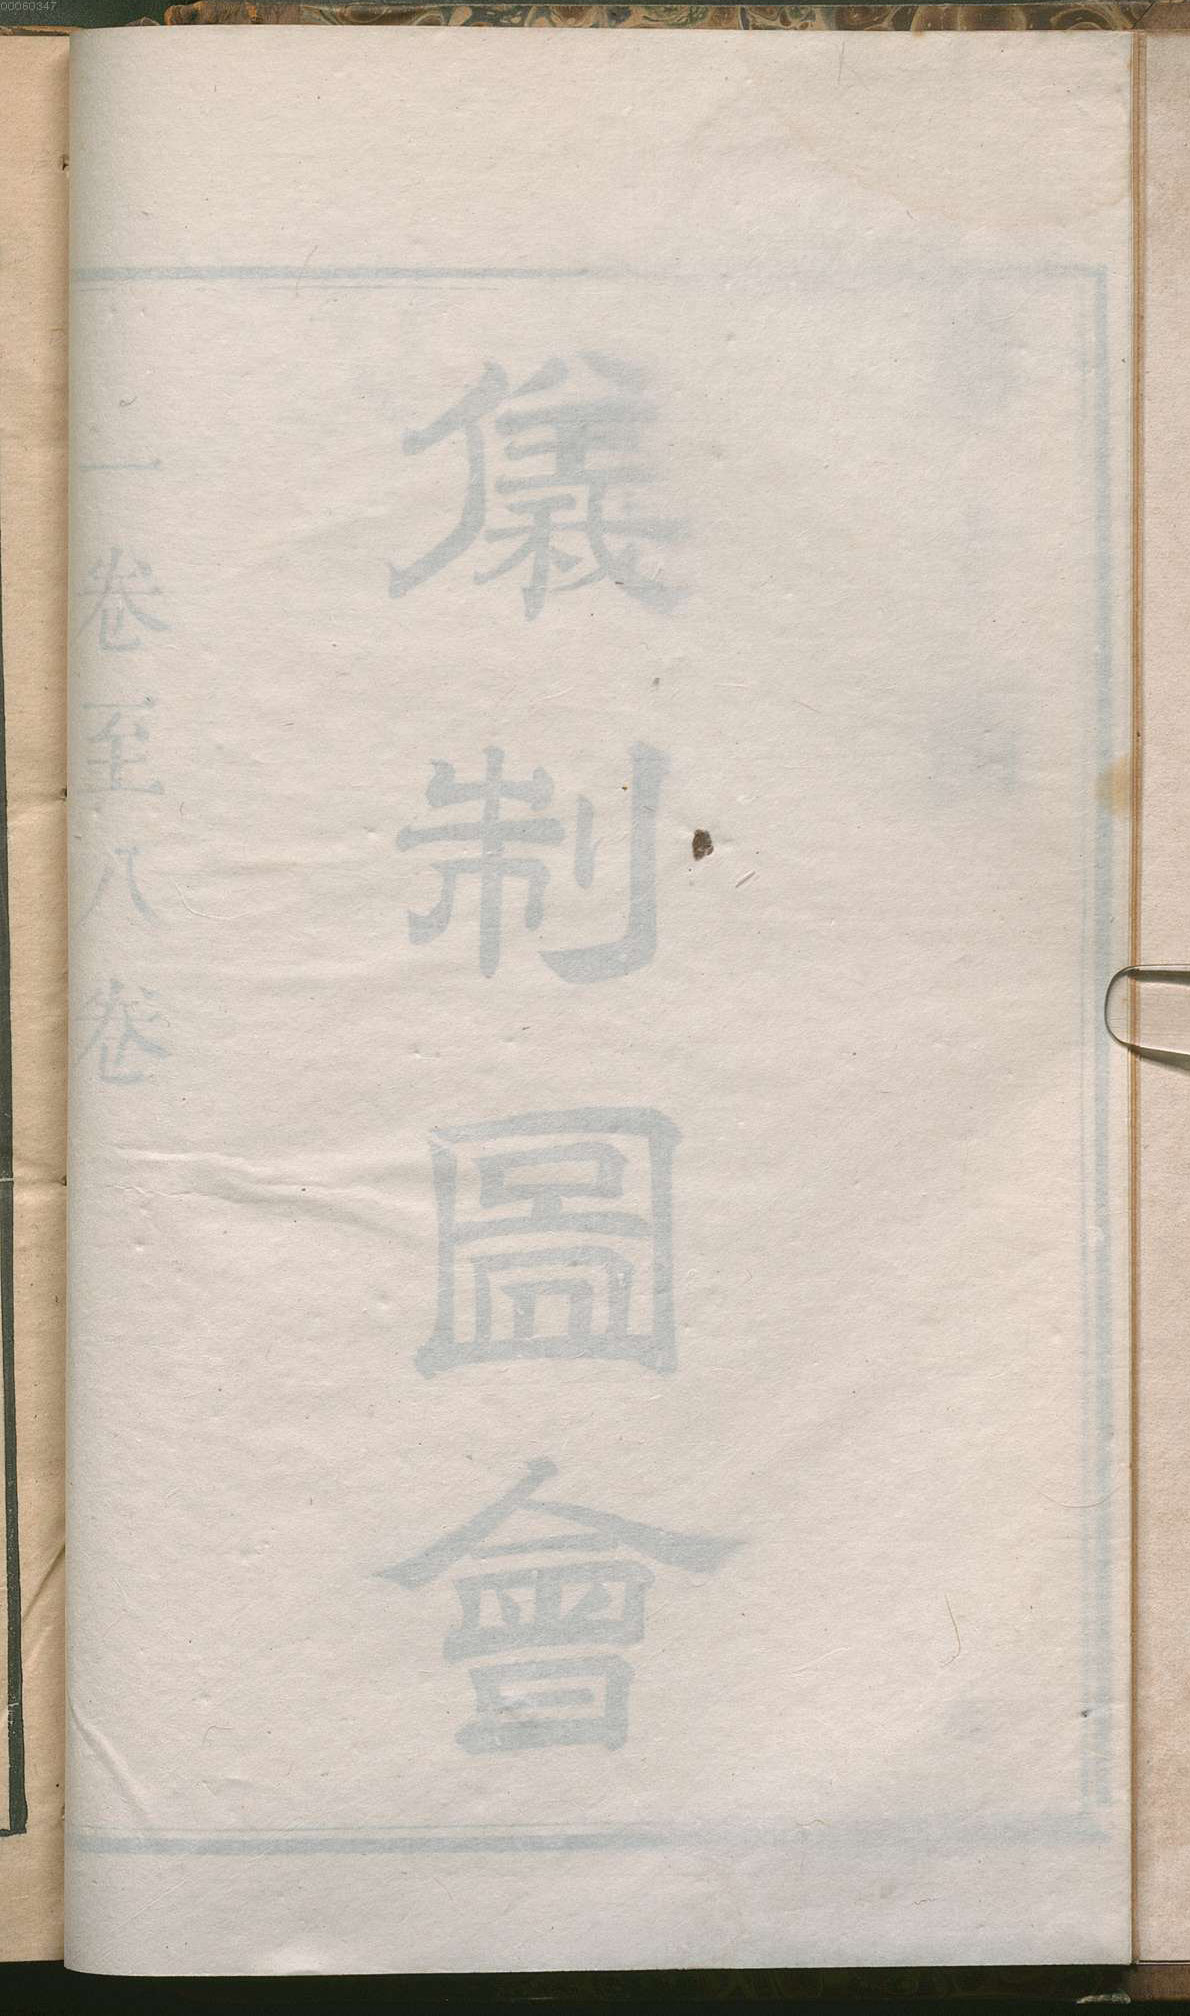 00060347
儀制圖會
一卷至八卷